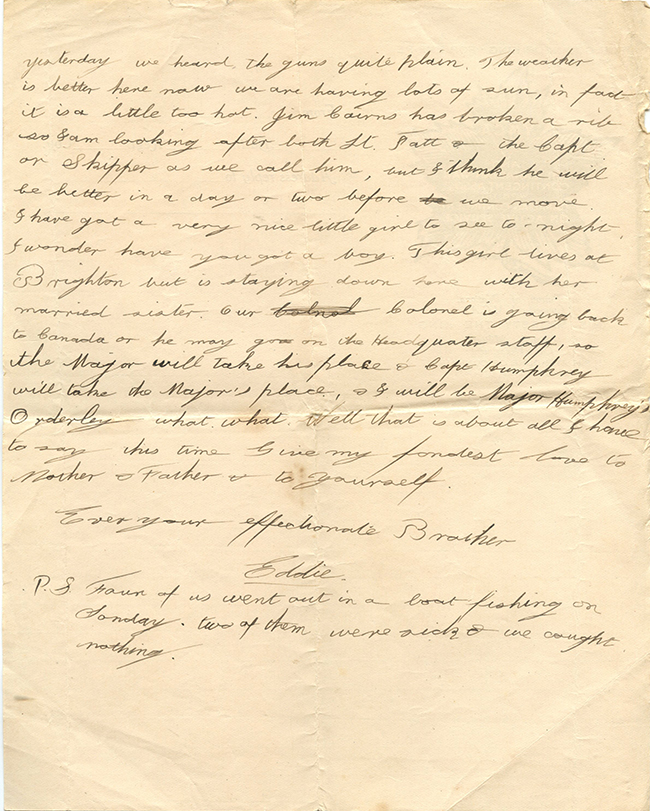 yesterday we heard the guns quite plain. The weather
is better here now we are having lots of sun, in fact
it is a little too hot. Jim Cairns has broken a rib
so I am looking after both Lt. Tatt & the Capt
or Skipper as we call him, but I think he will
be better in a day or two before we move.
I have got a very nice little girl to see to-night,
I wonder have you got a boy. This girl lives at
Brighton but is staying down here with her
married sister. Our Colonel is going back
to Canada or he may go on the Headquater staff, so
the Major will take his place & Capt Humphrey
will take the Major's place, & I will be Major Humphrey's
Orderley what. what. Well that is about all I have
to say this time Give my fondest love to
Mother & Father & to yourself.
Ever your effectionate Brother
Eddie.
P.S Four of us went out in a boat fishing on
Sonday. two of them were sick & we cought
nothing.